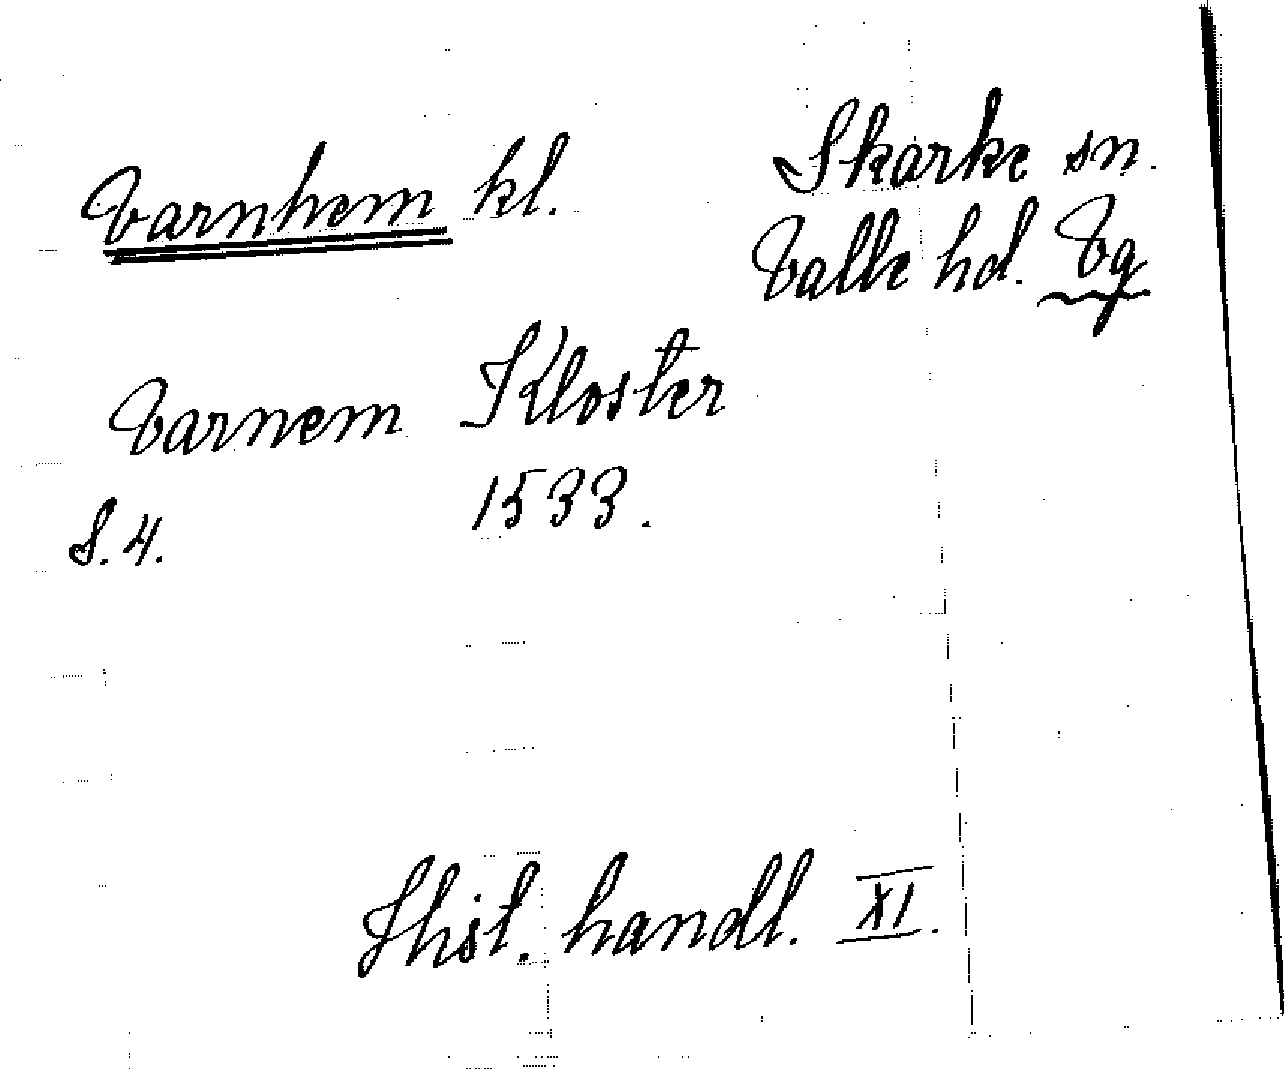 Varnhem kl.
Skarke sn.
Valle hd. Vg
Varnem Kloster
S. 4.
1533.
Hist. handl. XI.